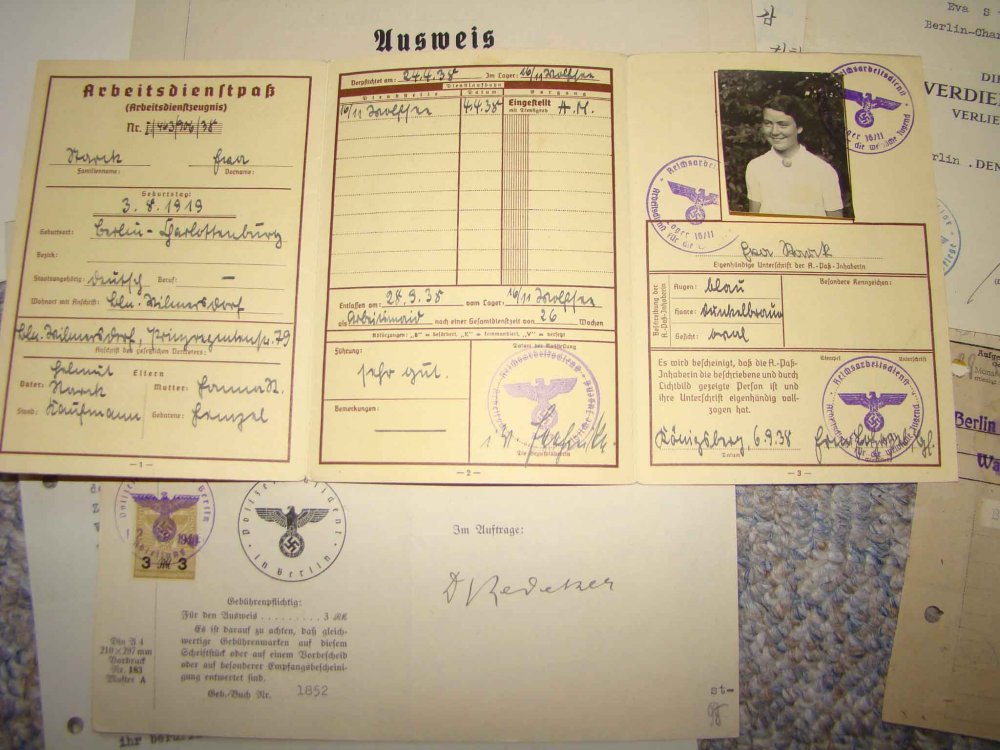 Ausweis
Arbeitsdienstpaß
(Arbeitsdienstzeugnis)
Nr. /463/906/38
Starck Eva
Familienname: Vorname:
Geburtstag:
3. 8. 1919
Geburtsort: Berlin-Charlottenburg
Bezirk:
Staatsangehörig: deutsch Beruf: —
Wohnort mit Anschrift: Bln. Wilmersdorf
Bln. Wilmersdorf, Prinzregentenstr. 79
Anschrift des gesetzlichen Vertreters:
Eltern
Vater: Helmut Starck Mutter: Hanna St.
Stand: Kaufmann Geborene: Henzel
— 1 —
Verpflichtet am: 24.4.38 Im Lager: 16/11 Wolfsee
Dienstlaufbahn
Dienststelle Datum Vorgang
16/11 Wolfsee 4.4.38 Eingestellt mit Dienstgrad: A.M.
Entlassen am: 28.9.38 vom Lager: 16/11 Wolfsee
als Arbeitsmaid nach einer Gesamtdienstzeit von 26 Wochen
Abkürzungen: „B“ = befördert, „K“ = kommandiert, „V“ = versetzt
Führung:
sehr gut.
Datum der Ausstellung
Bemerkungen:
Die Bezirksführerin
— 2 —
Reichsarbeitsdienst
Lager 16/11
für die weibliche Jugend
Reichsarbeitsdienst
Lager 16/11
Eva Starck
Eigenhändige Unterschrift der A.-Paß-Inhaberin
Beschreibung der A.-Paß-Inhaberin
Augen: blau
Haare: dunkelbraun
Gesicht: oval
Besondere Kennzeichen:
Es wird bescheinigt, daß die A.-Paß-
Inhaberin die beschriebene und durch
Lichtbild gezeigte Person ist und
ihre Unterschrift eigenhändig voll-
zogen hat.
Stempel Unterschrift
Königsberg, 6.9.38
Datum
— 3 —
Eva S
Berlin-Char
DI
VERDIE
VERLIE
rlin, DEN
Berlin
Wa
3 RM 3
Polizeipräsident in Berlin
Im Auftrage:
Gebührenpflichtig:
Für den Ausweis . . . . . . . . . 3 RM
Es ist darauf zu achten, daß gleich-
wertige Gebührenmarken auf diesem
Schriftstück oder auf einem Vorbescheid
oder auf besonderer Empfangsbescheini-
gung entwertet sind.
Geb.-Buch Nr. 1852
Din A 4
210×297 mm
Vordruck
Nr. 183
Muster A
st-